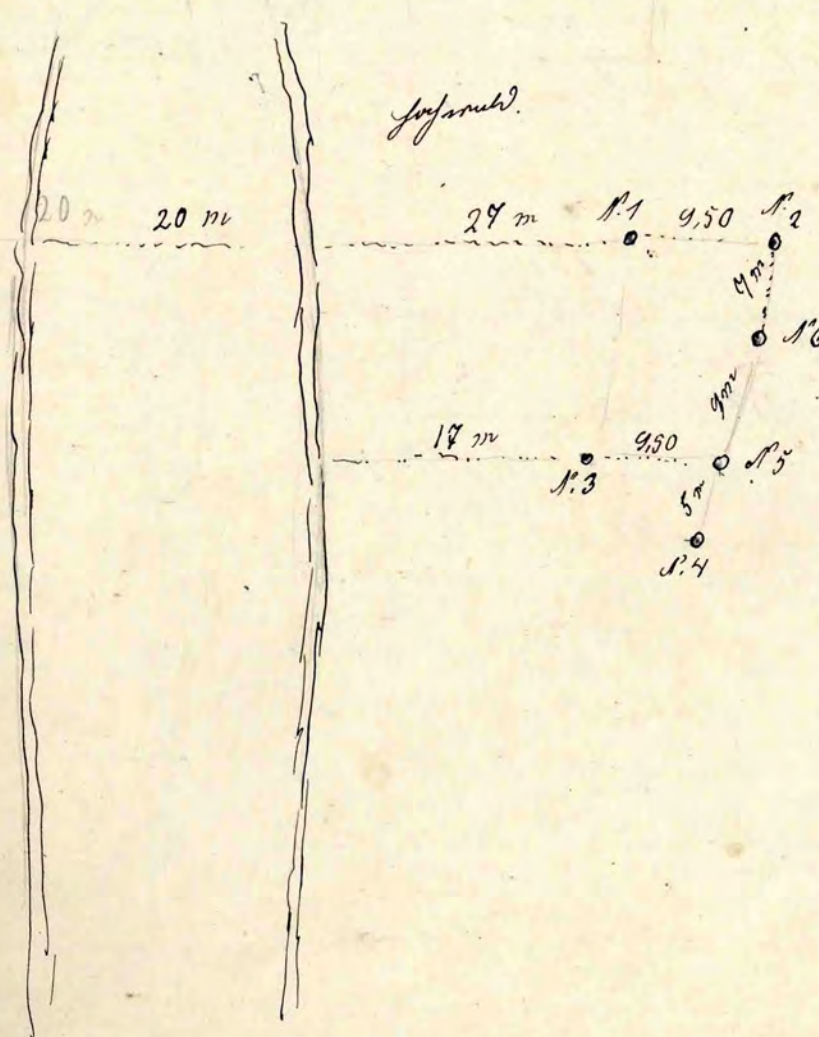 Hochwald.
20 m
20 m
27 m
N. 1
9,50
N. 2
7 m
N. 6
9 m
17 m
9,50
N. 3
N. 5
5 m
N. 4